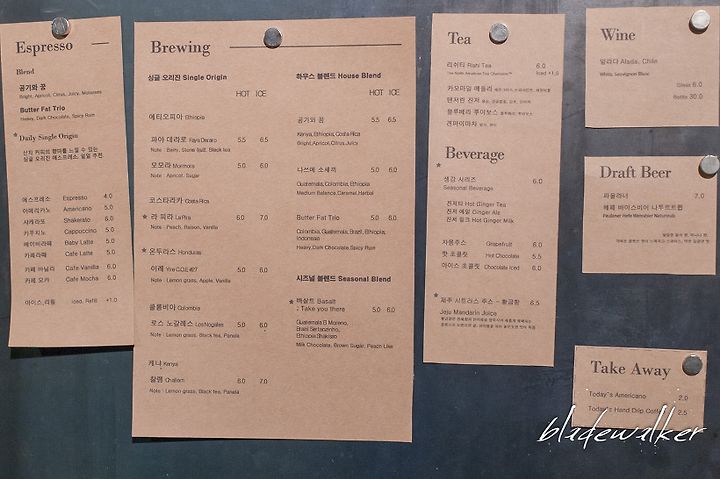 Espresso
Blend
공기와 꿈
Bright, Apricot, Citrus, Juicy, Molasses
Butter Fat Trio
Heavy, Dark Chocolate, Spicy Rum
* Daily Single Origin
산지 커피의 향미를 느낄 수 있는
싱글 오리진 에스프레소, 일일 추천.
에스프레소 Espresso 4.0
아메리카노 Americano 5.0
샤케라또 Shakerato 6.0
카푸치노 Cappuccino 5.0
베이비라떼 Baby Latte 5.0
카페라떼 Cafe Latte 5.0
카페 바닐라 Cafe Vanilla 6.0
카페 모카 Cafe Mocha 6.0
아이스, 리필 Iced, Refill +1.0
Brewing
싱글 오리진 Single Origin
HOT ICE
에티오피아 Ethiopia
파야 데라로 Faya Deraro 5.5 6.5
Note : Berry, Stone fruit, Black tea
모모라 Mormora 5.0 6.0
Note : Apricot, Sugar
코스타리카 Costa Rica
* 라 피라 La Pira 6.0 7.0
Note : Peach, Raison, Vanilla
* 온두라스 Honduras
이레 Yire COE#27 5.0 6.0
Note : Lemon grass, Apple, Vanilla
콜롬비아 Colombia
로스 노갈레스 Los Nogales 5.0 6.0
Note : Lemon grass, Black tea, Panela
케냐 Kenya
찰렘 Challem 6.0 7.0
Note : Lemon grass, Black tea, Panela
하우스 블렌드 House Blend
HOT ICE
공기와 꿈 5.5 6.5
Kenya, Ethiopia, Costa Rica
Bright, Apricot, Citrus, Juicy
나쓰메 소세끼 5.0 6.0
Guatemala, Colombia, Ethiopia
Medium Balance, Caramel, Herbal
Butter Fat Trio 5.0 6.0
Colombia, Guatemala, Brazil, Ethiopia,
Indonesia
Heavy, Dark Chocolate, Spicy Rum
시즈널 블렌드 Seasonal Blend
* 바살트 Basalt
: Take you there 5.0 6.0
Guatemala El Moreno,
Brazil Sertaozinho,
Ethiopia Shakisso
Milk Chocolate, Brown Sugar, Peach Like
Tea
리쉬티 Rishi Tea 6.0
The North American Tea Champions Iced +1.0
카모마일 메들리
탠저린 진저
블루베리 루이보스
겐마이마차
Beverage
* 생강 시리즈 6.0
Seasonal Beverage
진저티 Hot Ginger Tea
진저 에일 Ginger Ale
진저 밀크 Hot Ginger Milk
자몽주스 Grapefruit 6.0
핫 초콜릿 Hot Chocolate 5.5
아이스 초콜릿 Chocolate Iced 6.0
* 제주 시트러스 주스 - 황금향 6.5
Jeju Mandarin Juice
Wine
알라다 Alada, Chile
White, Sauvignon Blanc
Glass 6.0
Bottle 30.0
Draft Beer
파울라너 7.0
헤페 바이스비어 나투르트륍
Paulaner Hefe Weissbier Naturtrub
Take Away
Today's Americano 2.0
Today's Hand Drip Coffee 2.5
bladewalker